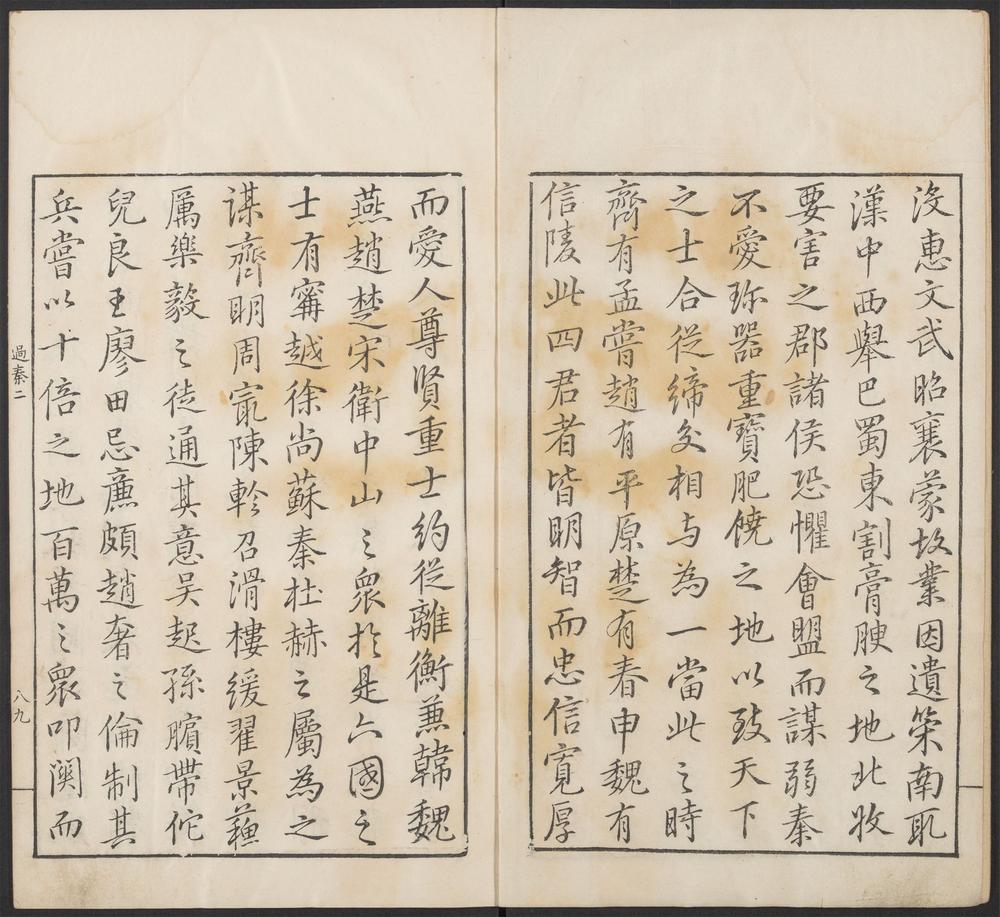 没惠文武昭襄蒙故業因遺策南取
漢中西舉巴蜀東割膏腴之地北收
要害之郡諸侯恐懼會盟而謀弱秦
不愛珎器重寶肥饒之地以致天下
之士合從締交相与為一當此之時
齊有孟嘗趙有平原楚有春申魏有
信陵此四君者皆明智而忠信寬厚
而愛人尊賢重士約從離衡兼韓魏
燕趙楚宋衛中山之衆於是六國之
士有甯越徐尚蘇秦杜赫之屬為之
謀齊明周㝡陳軫召滑樓緩翟景蘓
厲樂毅之徒通其意吳起孫臏帶佗
兒良王廖田忌廉頗趙奢之倫制其
兵嘗以十倍之地百萬之衆叩関而
過秦二
八九